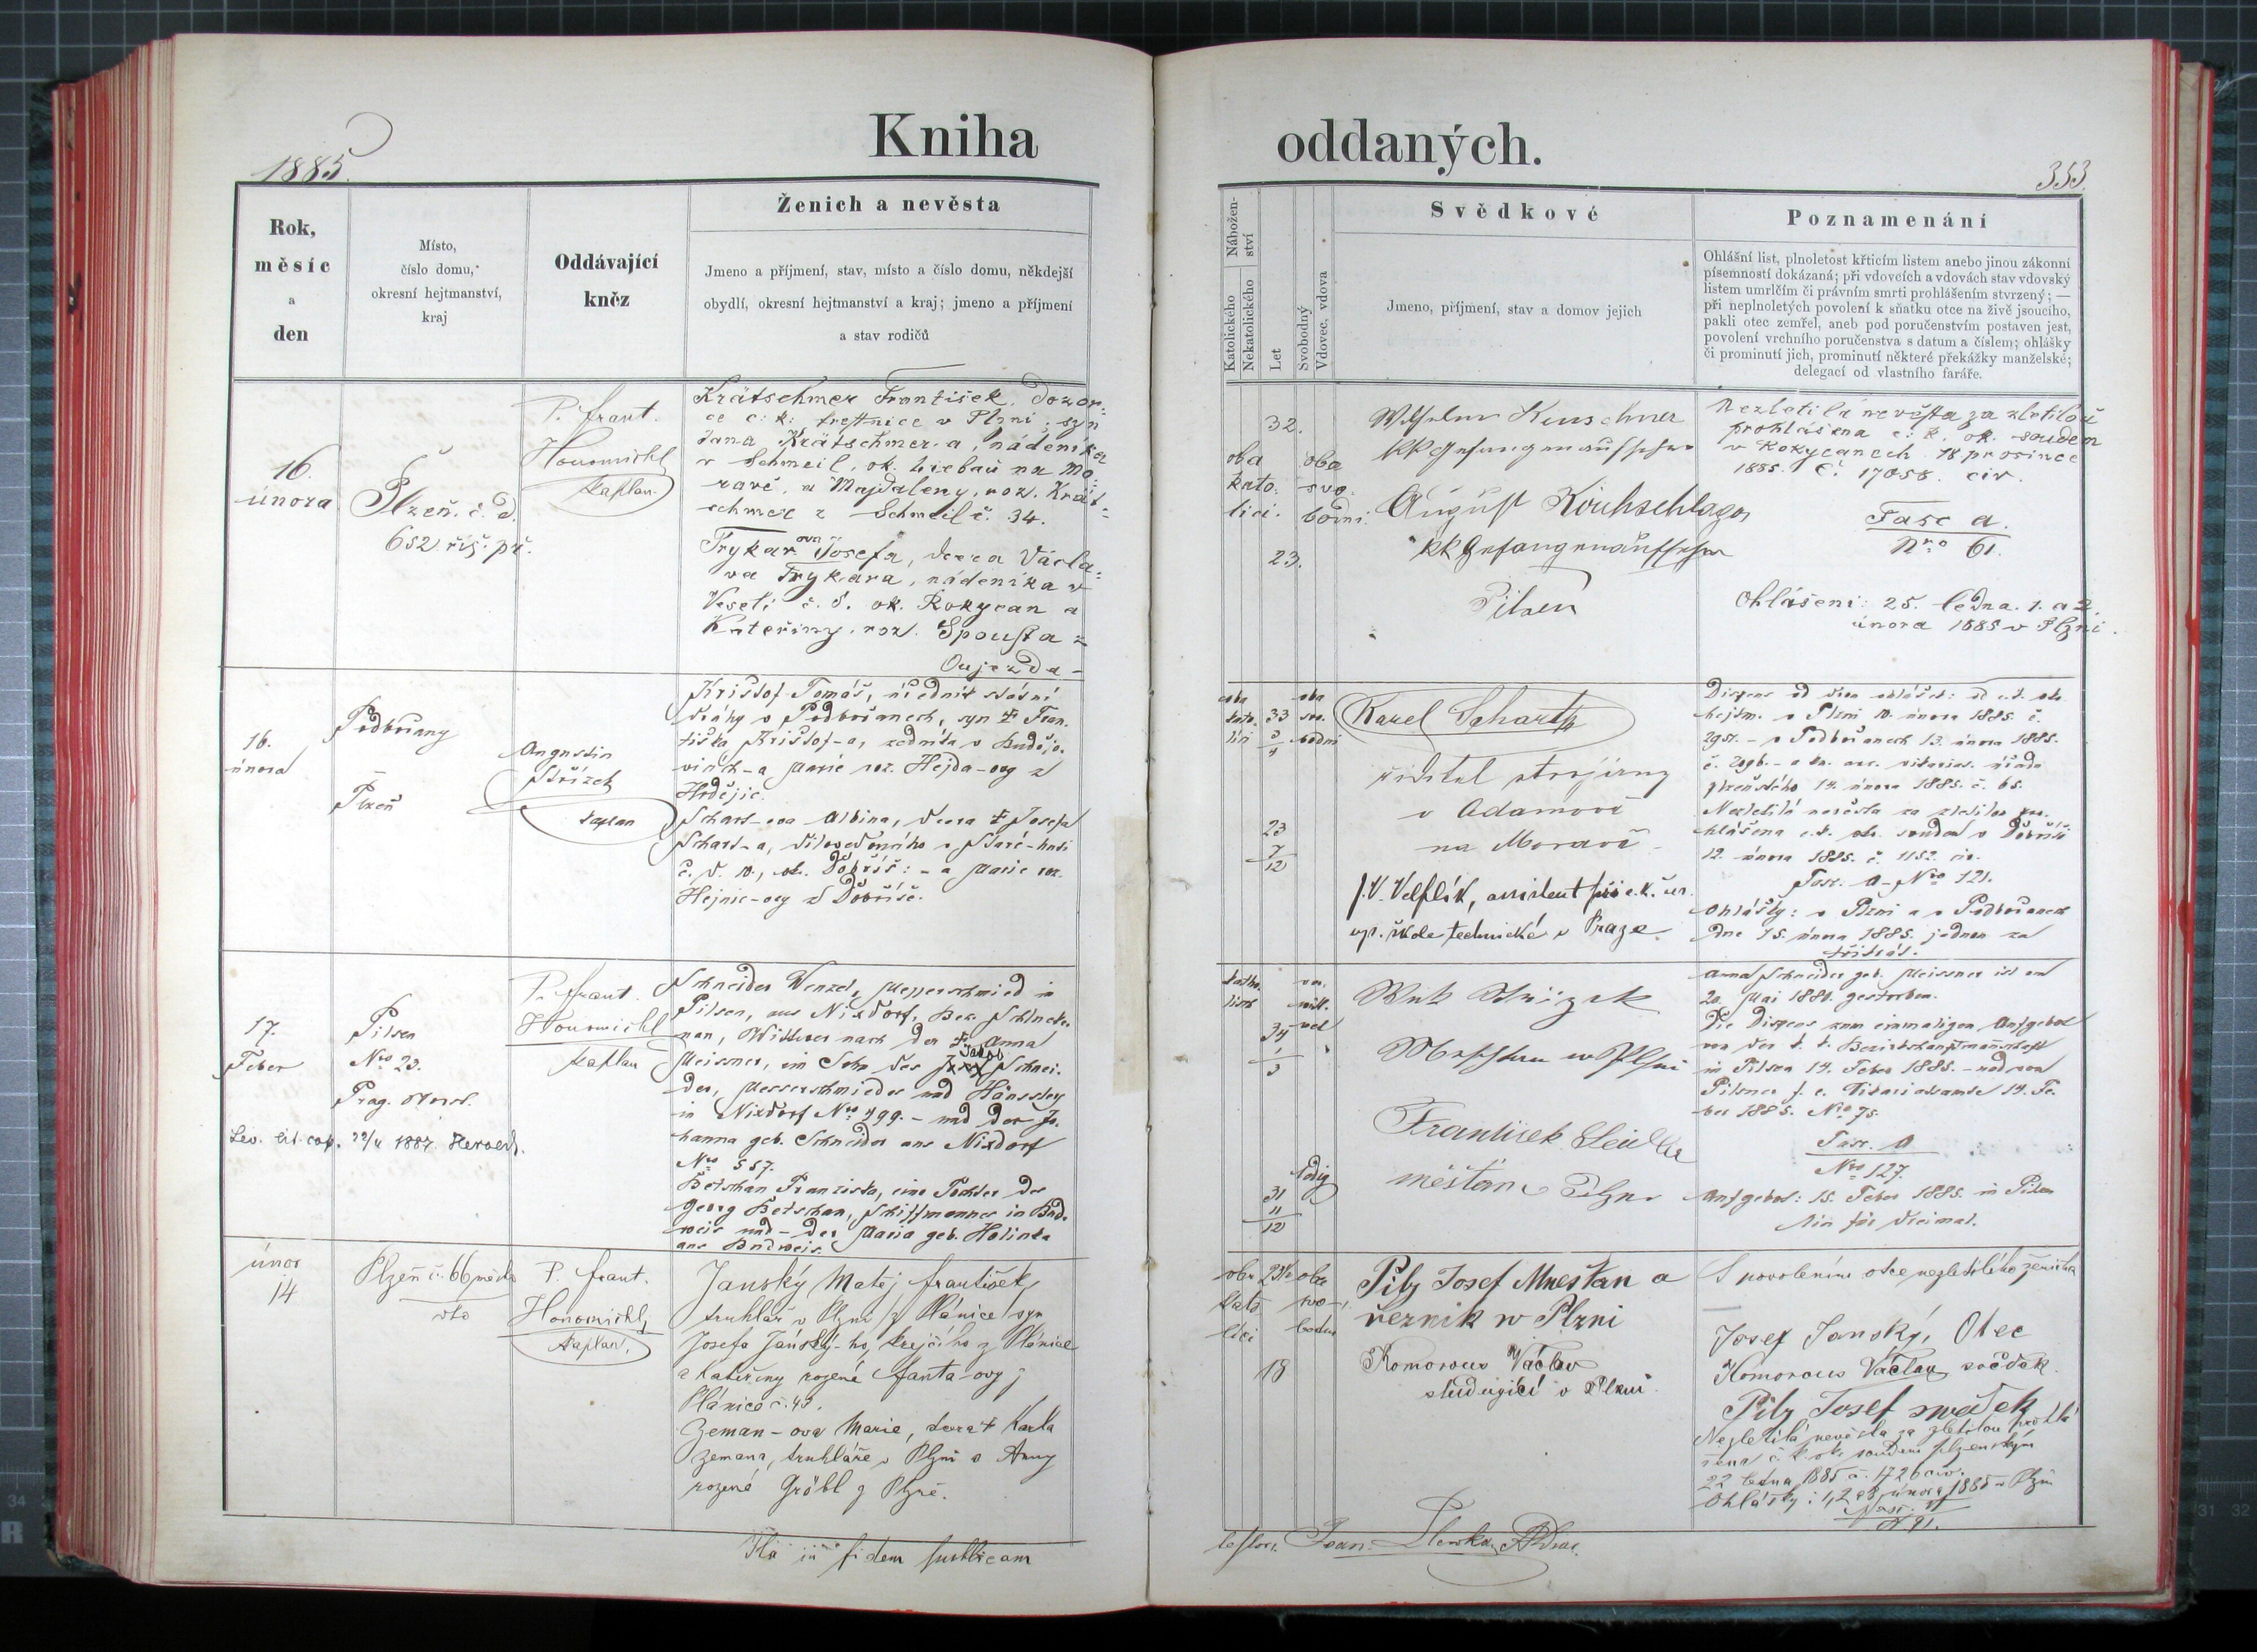 1885.
Kniha
Rok,
měsíc
a
den
Místo,
číslo domu,
okresní hejtmanství,
kraj
Oddávající
kněz
Ženich a nevěsta
Jmeno a příjmení, stav, místo a číslo domu, někdejší
obydlí, okresní hejtmanství a kraj; jmeno a příjmení
a stav rodičů
16.
února
Plzeň. č. d.
652 říš. př.
P. frant.
Honomichl
kaplan.
Krätschmer František, dozor-
ce c: k: trestnice v Plzni; syn
Jana Krätschmer-a, nádeníka
v Schmeil, ok. Liebau na Mo-
ravě, a Majdaleny, roz. Krät-
schmer z Schmeil č. 34.
Trykar ova Josefa, dcera Václa-
va Trykara, nádeníka v
Veselí č. 8. ok. Rokycan a
Kateřiny, roz. Spousta z
Oujezda-
16.
února
Podbořany
Plzeň
Augustin
Střízek
kaplan
Krištof Tomáš, úředník státní
dráhy v Podbořanech, syn ‡ Fran.
tiška Krištof-a, zedníka v Budějo-
vicích-a Marie roz. Hejda-ovy z
Hrdějic.
Schart-ova Albina, dcera ‡ Josefa
Schart-a, dílovedoucího v Staré-huti
č. d. 10., ok. Dobříš: - a Marie roz.
Hejnic-ovy z Dobříše.
17.
Feber
Pilsen
Nro 23.
Prag. Vorst.
Lev. lit. cop. 22/4 1887. Herold.
P. frant.
Honomichl
kaplan
Schneider Wenzel, Messerschmied in
Pilsen, aus Nixdorf, Bez. Schlucke-
nau, Wittwer nach der ‡ Anna
Meissner, ein Sohn des Jakob Schnei-
der, Messerschmiedes und Häussler
in Nixdorf Nro 499. - und der Jo-
hanna geb. Schneider aus Nixdorf
Nro 557.
Betschan Franziska, eine Tochter des
Georg Betschan, Schiffmannes in Bud-
weis und - der Maria geb. Holinka
aus Budweis.
únor
14
Plzeň č. 66
P. frant.
Honomichl,
kaplan.
Janský Matěj František,
truhlář v Plzni z Plánice, syn
Josefa Janský-ho, krejčího z Plánice
a Kateřiny rozené Fanta-ovy z
Plánice č. 43.
Zeman-ova Marie, dcera ‡ Karla
Zemana, truhláře v Plzni a Anny
rozené Gröbl z Plzně.
in fidem publicam
oddaných.
353.
Nábožen-
ství
Katolického
Nekatolického
Let
Svobodný
Vdovec, vdova
Svědkové
Jmeno, příjmení, stav a domov jejich
Poznamenání
Ohlášní list, plnoletost křticím listem anebo jinou zákonní
písemností dokázaná; při vdovcích a vdovách stav vdovský
listem umrlčím či právním smrti prohlášením stvrzený; —
při neplnoletých povolení k sňatku otce na živě jsoucího,
pakli otec zemřel, aneb pod poručenstvím postaven jest,
povolení vrchního poručenstva s datum a číslem; ohlášky
či prominutí jich, prominutí některé překážky manželské;
delegací od vlastního faráře.
oba
kato-
líci.
32.
23.
oba
svo-
bodni.
Wilhelm Kuschner
kk Gefangenaufseher
August
kk Gefangenaufseher
Pilsen
Nezletilá nevěsta za zletilou
prohlášena c: k. ok. soudem
v Rokycanech 18 prosince
1885. č. 17058. civ.
Fasc a.
Nro 61.
Ohlášení: 25. ledna. 1. a 2.
února 1885 v Plzni.
oba
kato.
líci
33
3
4
23
7
12
oba
svo.
bodni
Karel Schart
ředitel strojírny
v Adamově
na Moravě
J. V. Velflík, assistent při c. k. čes.
vys. škole technické v Praze.
hejtm. v Plzni 10. února 1885. č.
v Podbořanech 13. února 1885.
plzeňského 14. února 1885. č. 65.
Nezletilá nevěsta za zletilou pro-
hlášena c. k. okr. soudem v Dobříši
12. února 1885. č. 1152. civ.
Fasc. A - Nro 121.
Ohlášky: v Plzni a v Podbořanech
dne 15. února 1885. jednou za
třikrát.
katho.
lisch
34
1
3
31
11
12
ver.
witt.
wet
ledig
František
měšťan v Plzni
Anna Schneider geb. Meissner ist am
20. Mai 1881. gestorben.
Die Dispens zum einmaligen Aufgebot
von der k. k. Bezirkshauptmannschaft
in Pilsen 14. Feber 1885. - und vom
Pilsner f. e. Vikariatsamte 14. Fe-
ber 1885. Nro 75.
Fasc. A
Nro 127.
Aufgebot: 15. Feber 1885. in Pilsen
ein für dreimal.
oba
kato
líci
23½
18
oba
svo-
bodni
Pilz Josef Mnešťan a
řezník w Plzni
Komorous Václav
studující v Plzni.
S povolením otce nezletilého ženicha
Josef Janský, Otec
Komorous Václav, svědek.
Pilz Josef swědek
Nezletilá nevěsta za zletilou prohlá-
šena c. k. ok. soudem plzenským
22 ledna 1885 č. 1726 civ.
Ohlášky: 1, 2 a 8 února 1885 v Plzni
Fasc. A
N 91.